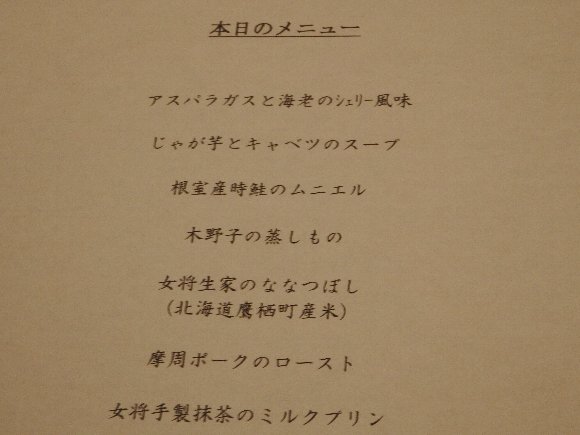 本日のメニュー
アスパラガスと海老のｼｪﾘｰ風味
じゃが芋とキャベツのスープ
根室産時鮭のムニエル
木野子の蒸しもの
女将生家のななつぼし
(北海道鷹栖町産米)
摩周ポークのロースト
女将手製抹茶のミルクプリン